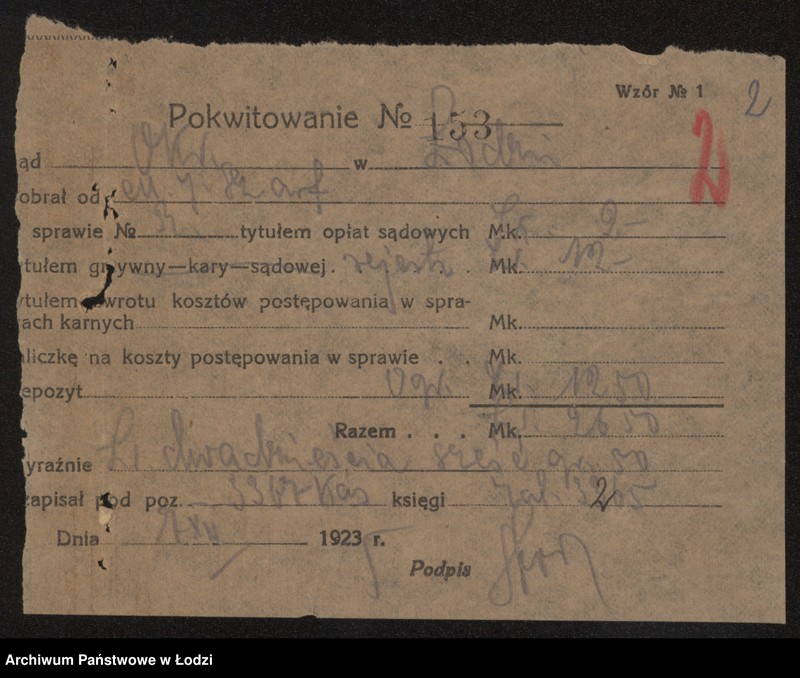 Wzór № 1 2
Pokwitowanie № 153
2
ąd Okr. w Łodzi
obrał od
sprawie № tytułem opłat sądowych Mk. Zł. 2-
ytułem grzywny—kary—sądowej . rejestr . . Mk. Zł. 12-
ytułem zwrotu kosztów postępowania w spra-
ach karnych Mk.
aliczkę na koszty postępowania w sprawie . . Mk.
epozyt ogł. Mk. Zł. 12 50
Razem . . . Mk. Zł. 26 50
yraźnie Zł. dwadzieścia sześć gr. 50
zapisał pod poz. 3367 Kas księgi
Dnia 1923 r.
Podpis
Archiwum Państwowe w Łodzi